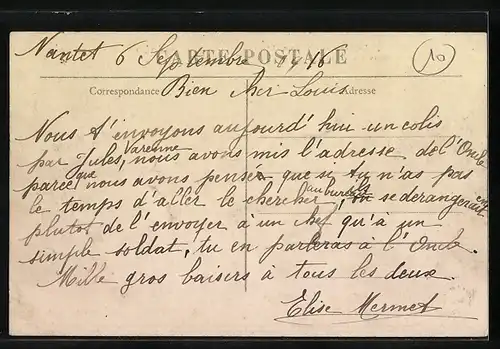 Nantet 6 Septembre 1916
CARTE POSTALE
Correspondance Adresse
Bien cher Louis
Nous t'envoyons aujourd'hui un colis
par Jules Varenne, nous avons mis l'adresse de l'Oncle
parce que nous avons pensée que si tu n'as pas
le temps d'aller le chercher, au bureau ils se derangeraient
plutot de l'envoyer à un chef qu'à un
simple soldat, tu en parleras à l'Oncle.
Mille gros baisers à tous les deux.
Elise Mermet
10